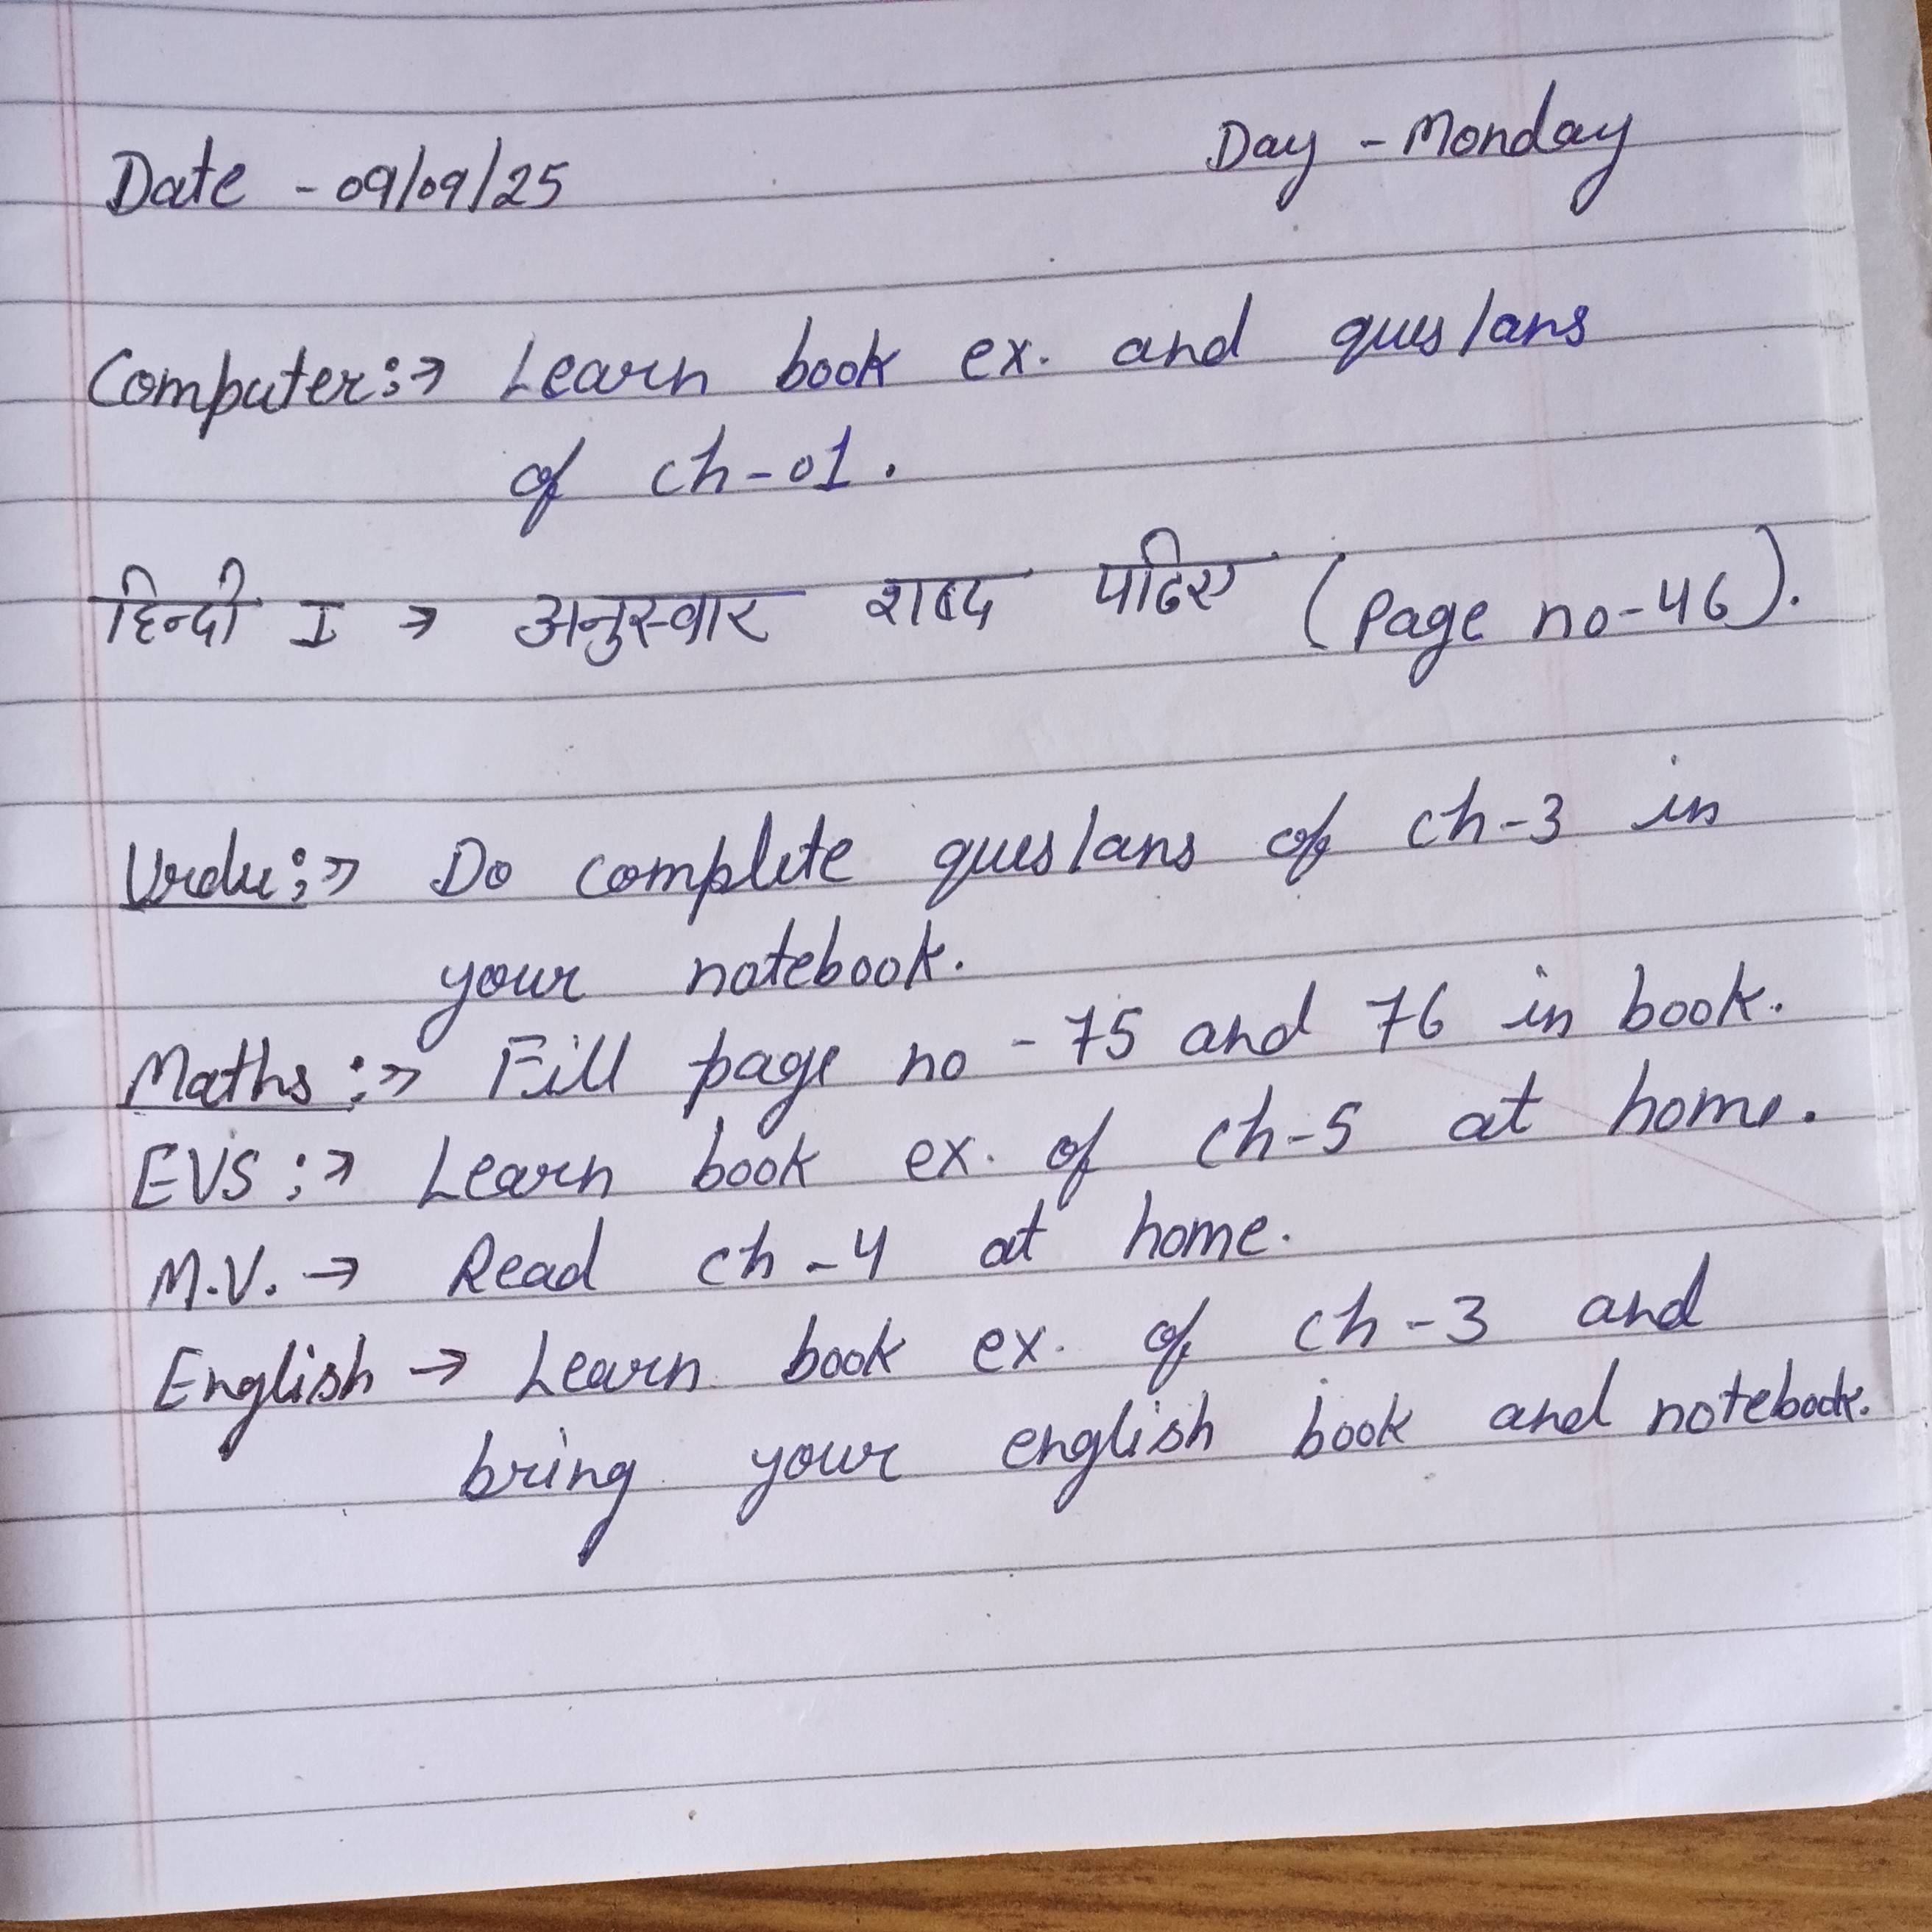 Date - 09/09/25 Day - Monday
Computer:→ Learn book ex. and ques/ans
of ch-01.
हिन्दी I → अनुस्वार शब्द पढिए (Page no-46).
Urdu:→ Do complete ques/ans of ch-3 in
your notebook.
Maths:→ Fill page no - 75 and 76 in book.
EVS:→ Learn book ex. of ch-5 at home.
M.V. → Read ch-4 at home.
English → Learn book ex. of ch-3 and
bring your english book and notebook.